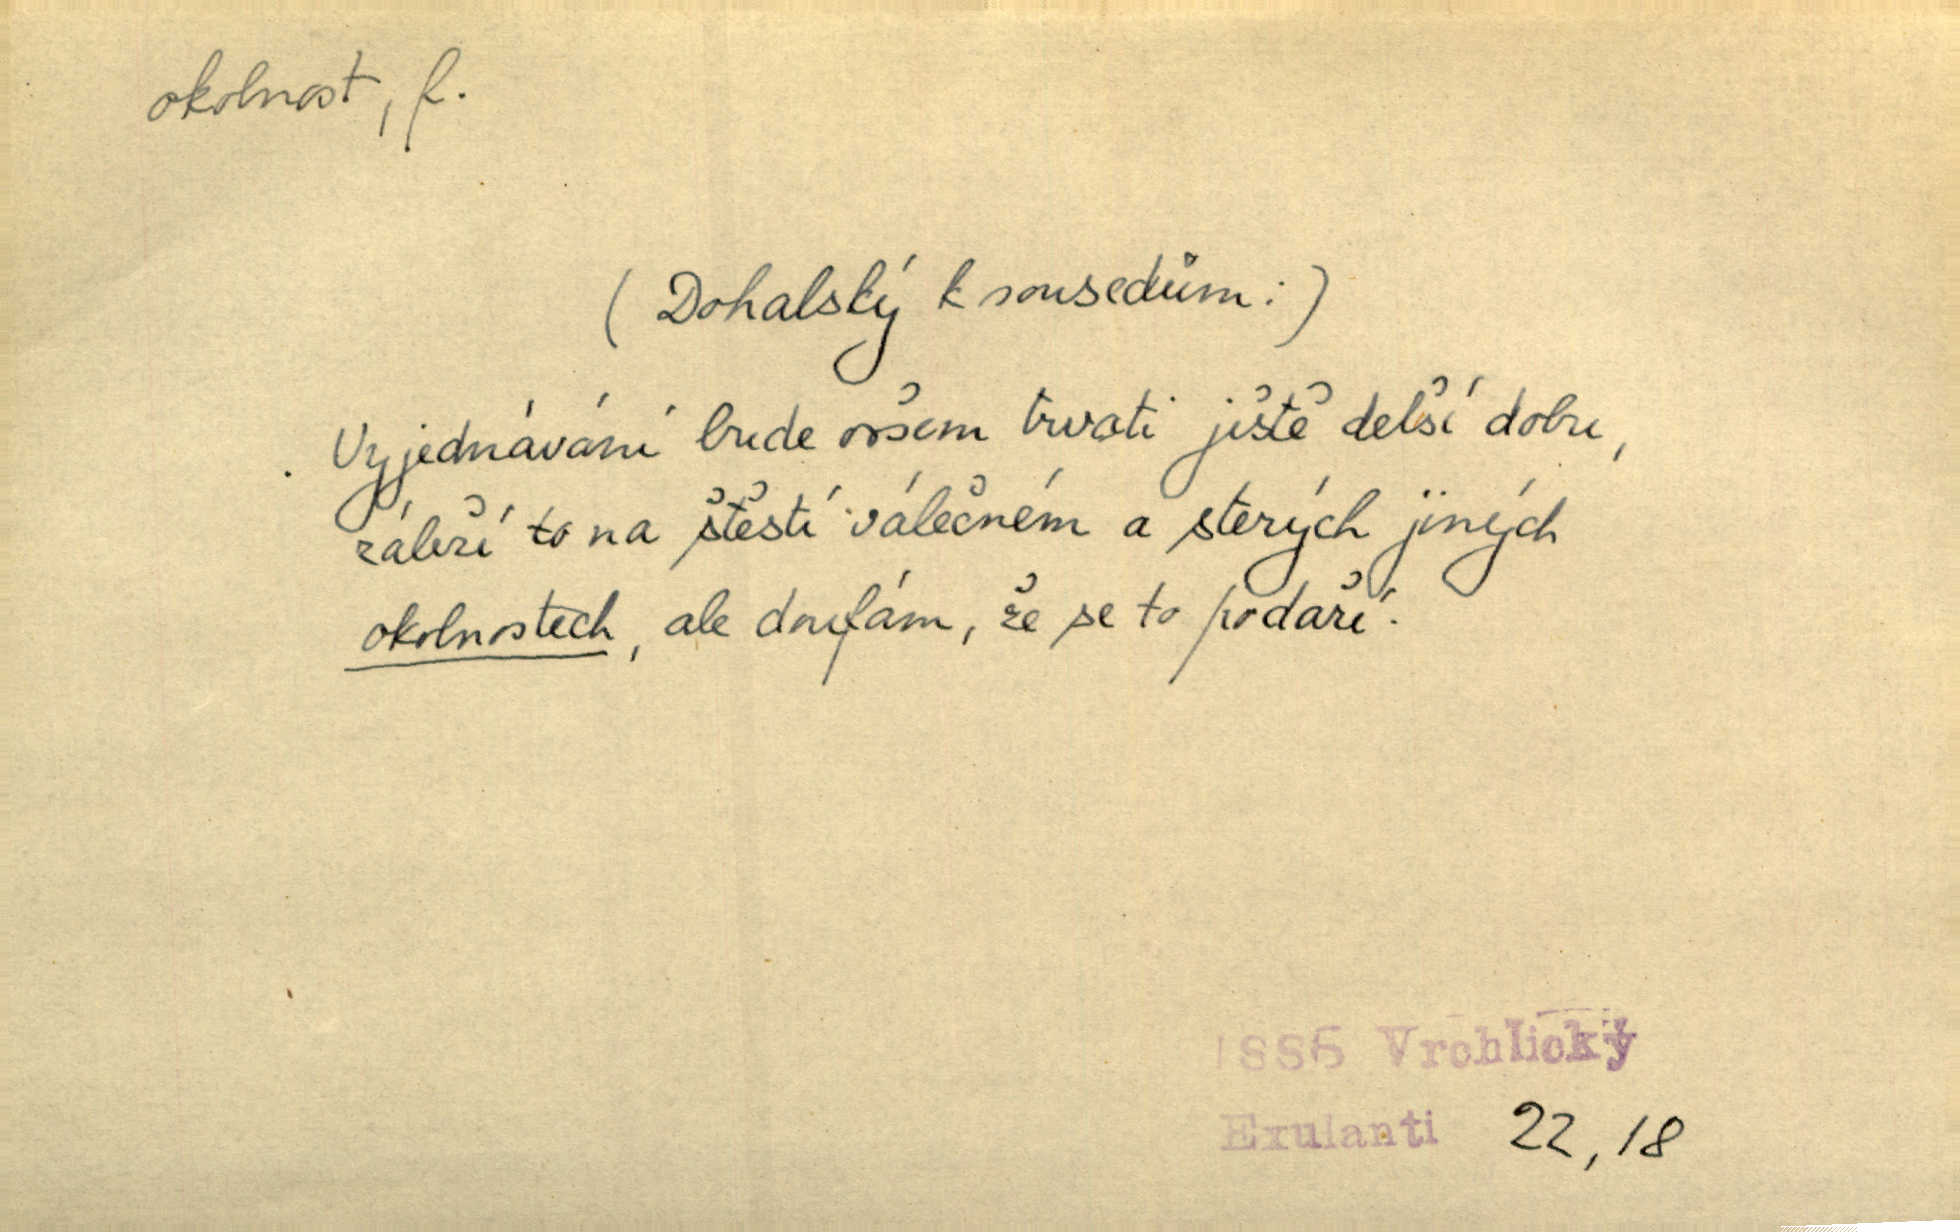 okolnost, f.
(Dohalský k sousedům:)
Vyjednávání bude ovšem trvati ještě delší dobu,
záleží to na štěstí válečném a sterých jiných
okolnostech, ale doufám, že se to podaří.
1886 Vrchlický
Exulanti 22,18